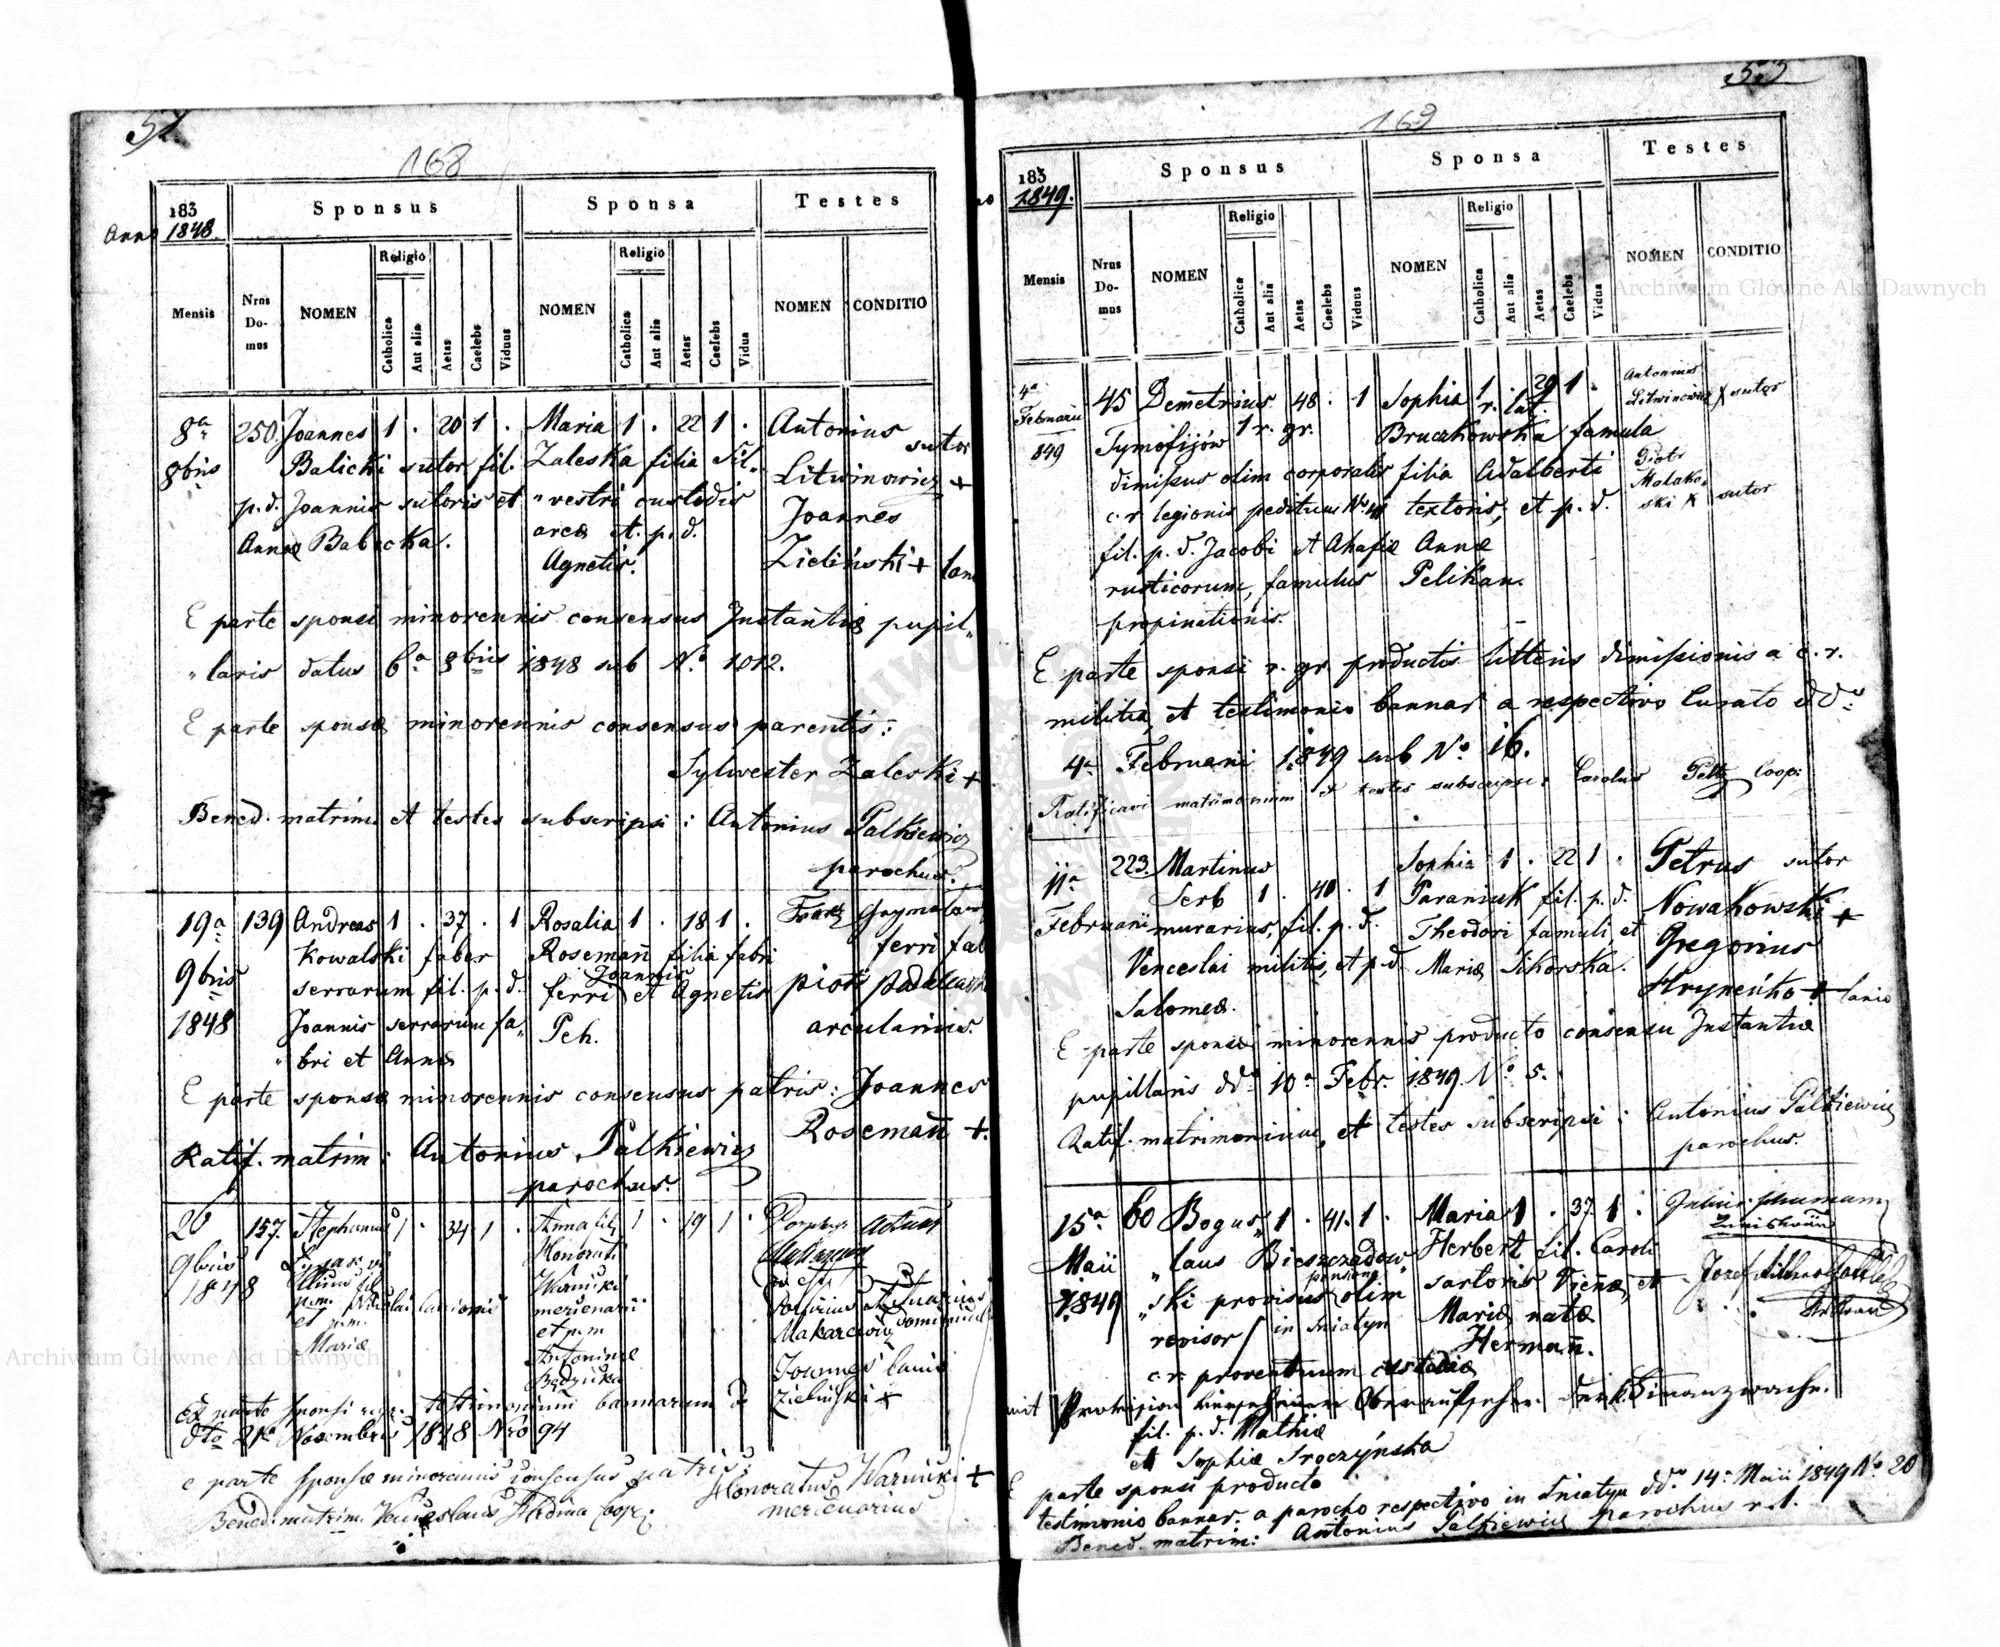 52
168
Anno 183
1848.
Sponsus
Sponsa
Testes
Mensis
Nrus Do-mus
NOMEN
Religio
Catholica
Aut alia
Aetas
Caelebs
Viduus
NOMEN
Religio
Catholica
Aut alia
Aetas
Caelebs
Vidua
NOMEN
CONDITIO
8a 250. Joannes 1 . 20 1 . Maria 1 . 22 1 . Antonius sutor
8bris Balicki sutor fil. Zaleska filia Sil- Litwinowicz +
p.d. Joannis sutoris et "vestri custodis Joannes
Annae Babecka. arca et p.d. Zieliński +
Agnetis.
E parte sponsi minorennis consensus Instantiae pupil-
"laris datus 6a 8bris 1848 sub No 1012.
E parte sponsae minorennis consensus parentis:
Sylwester Zaleski +
Bened. matrim. et testes subscripsi: Antonius Palkiewicz
parochus.
19a 139 Andreas 1 . 37 . 1 Rosalia 1 . 18 1 .
9bris Kowalski faber Rosemañ filia fabri ferri
1848 serrarum fil. p.d. ferri Joannis et Agnetis Piotr
Joannis serrarum fa- Peh. arcularius.
"bri et Annae
E parte sponsae minorennis consensus patris: Joannes
Rosemañ +.
Ratif. matrim: Antonius Palkiewicz
parochus.
26 157. Stephanus 1 . 34 1 . Anna fil. 1 . 19 1 .
9bris Honorati
1848 Warnicki
mercenarii
et p.m. et p.m. Makarewicz
Mariae Antoninae Joannes lanio
Zieliński +
Ex parte sponsi testimonium bannorum d
dto 21a Novembris 1848 Nro 94
e parte sponsae minorennis consensus patris:
Honoratus Warnicki +
mercenarius
Bened. matrim. Venceslaus Hrdina Coop:
53
169
183
1849.
Sponsus
Sponsa
Testes
Mensis
Nrus Do-mus
NOMEN
Religio
Catholica
Aut alia
Aetas
Caelebs
Viduus
NOMEN
Religio
Catholica
Aut alia
Aetas
Caelebs
Vidua
NOMEN
CONDITIO
4a 45 Demetrius 48 . 1 Sophia 1 . 29 1 . Antonius
Februarii Tymofijów 1 r. gr. r. lat. Litwinowicz + sutor
849 Bruczkowska famula
dimissus olim corporalis filia Adalberti Piotr
c.r. legionis peditum No 41 textoris, et p.d. Malako-
fil. p.d. Jacobi et Ahafiae Annae ski + sutor
rusticorum, famulus Pelikan.
propinationis.
E parte sponsi r. gr. productis litteris dimissionis a c.r.
militia, et testimonio bannar a respectivo Curato ddo
4a Februarii 1849 sub No 16.
Ratificavi matrimonium et testes subscripsi: Carolus Peltz Coop:
11a 223. Martinus Sophia 1 . 22 1 . Petrus sutor
Februarii Serb 1 . 40 . 1 Paraniuk fil. p.d. Nowakowski +
murarius, fil. p.d. Theodori famuli, et Gregorius
Venceslai militis, et p.d. Mariae Sikorska. Hrynenko + lanio
Salomeae.
E parte sponsae minorennis producto consensu Instantiae
pupillaris ddo 10a Febr. 1849 No 5.
Ratif. matrimonium, et testes subscripsi: Antonius Palkiewicz
parochus.
15a 60 Bogus- 1 . 41. 1 . Maria 1 . 37 1 .
Maii "laus Bieszczadow- Herbert fil. Caroli
1849 "ski provisus pension olim sartoris Vienae, et Josef
revisor in Sniatyn Mariae natae
Hermañ.
c.r. proventuum custodiae
mit Provision Oberaufseher der k.k. Finanzwache.
fil. p.d. Mathiae
et Sophiae Sroczyńska
E parte sponsi producto
testimonio bannar. a parocho respectivo in Sniatyn ddo 14a Maii 1849 No 20
Bened. matrim: Antonius Palkiewicz parochus r.l.
Archiwum Główne Akt Dawnych
Archiwum Główne Akt Dawnych